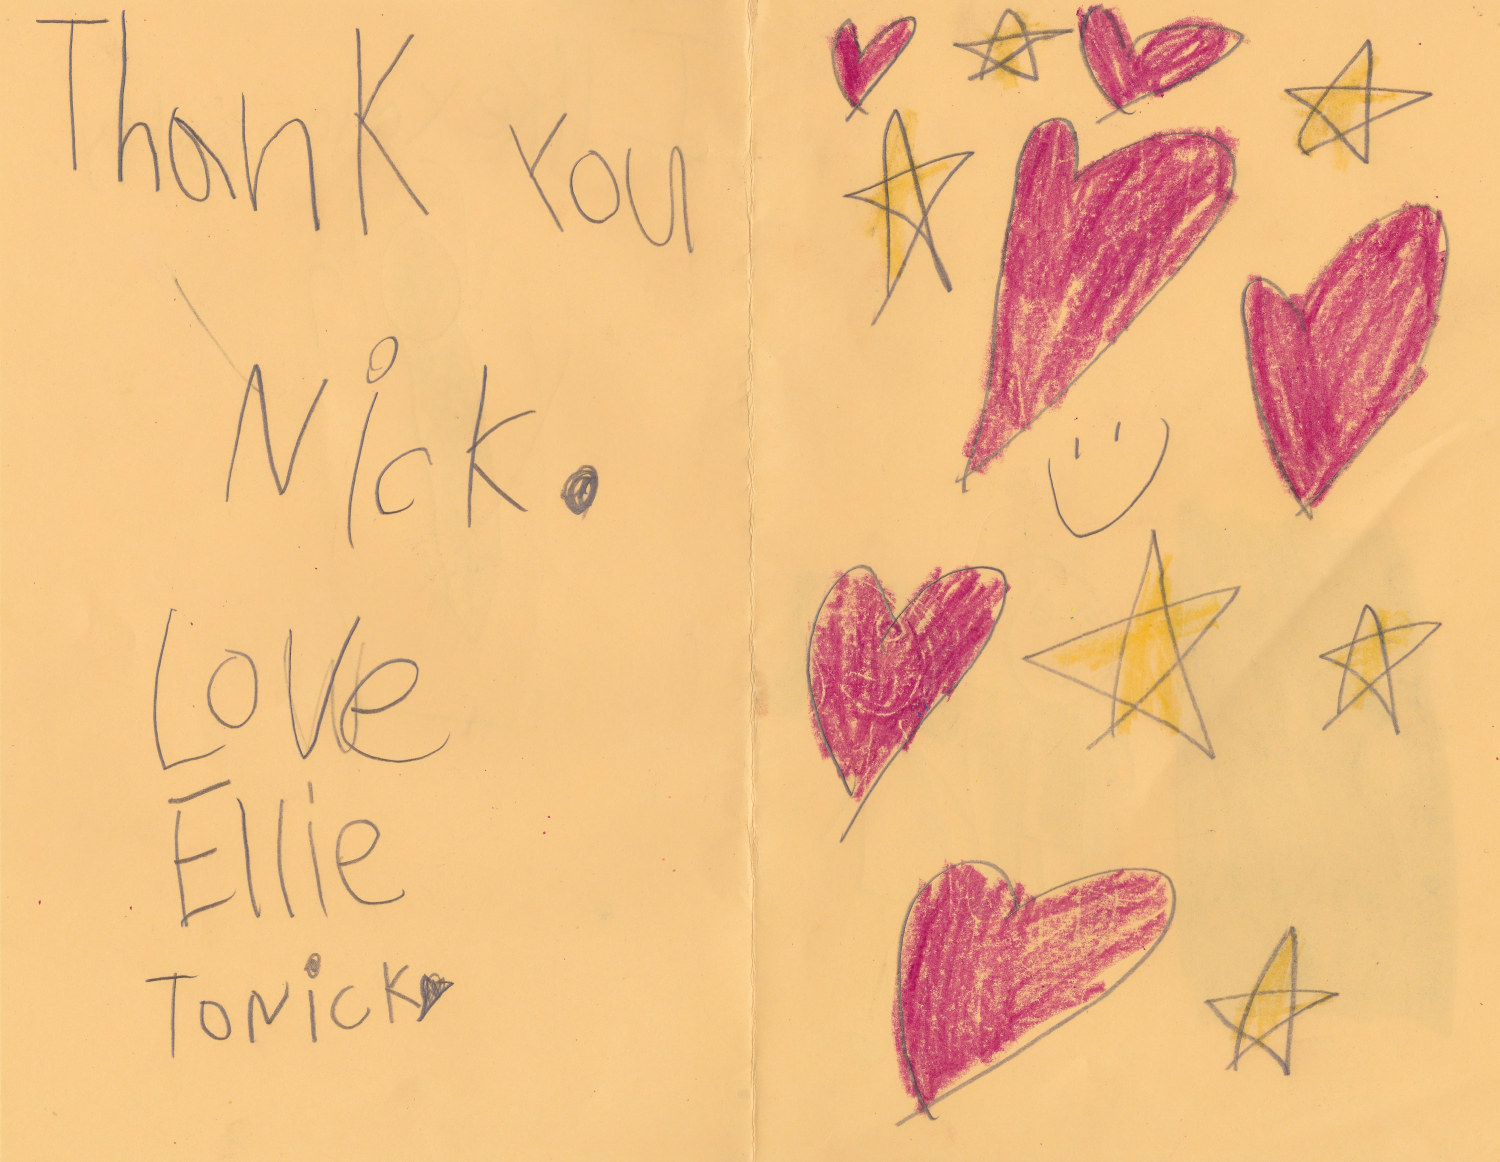 Thank You
Nick.
Love
Ellie
To Nick